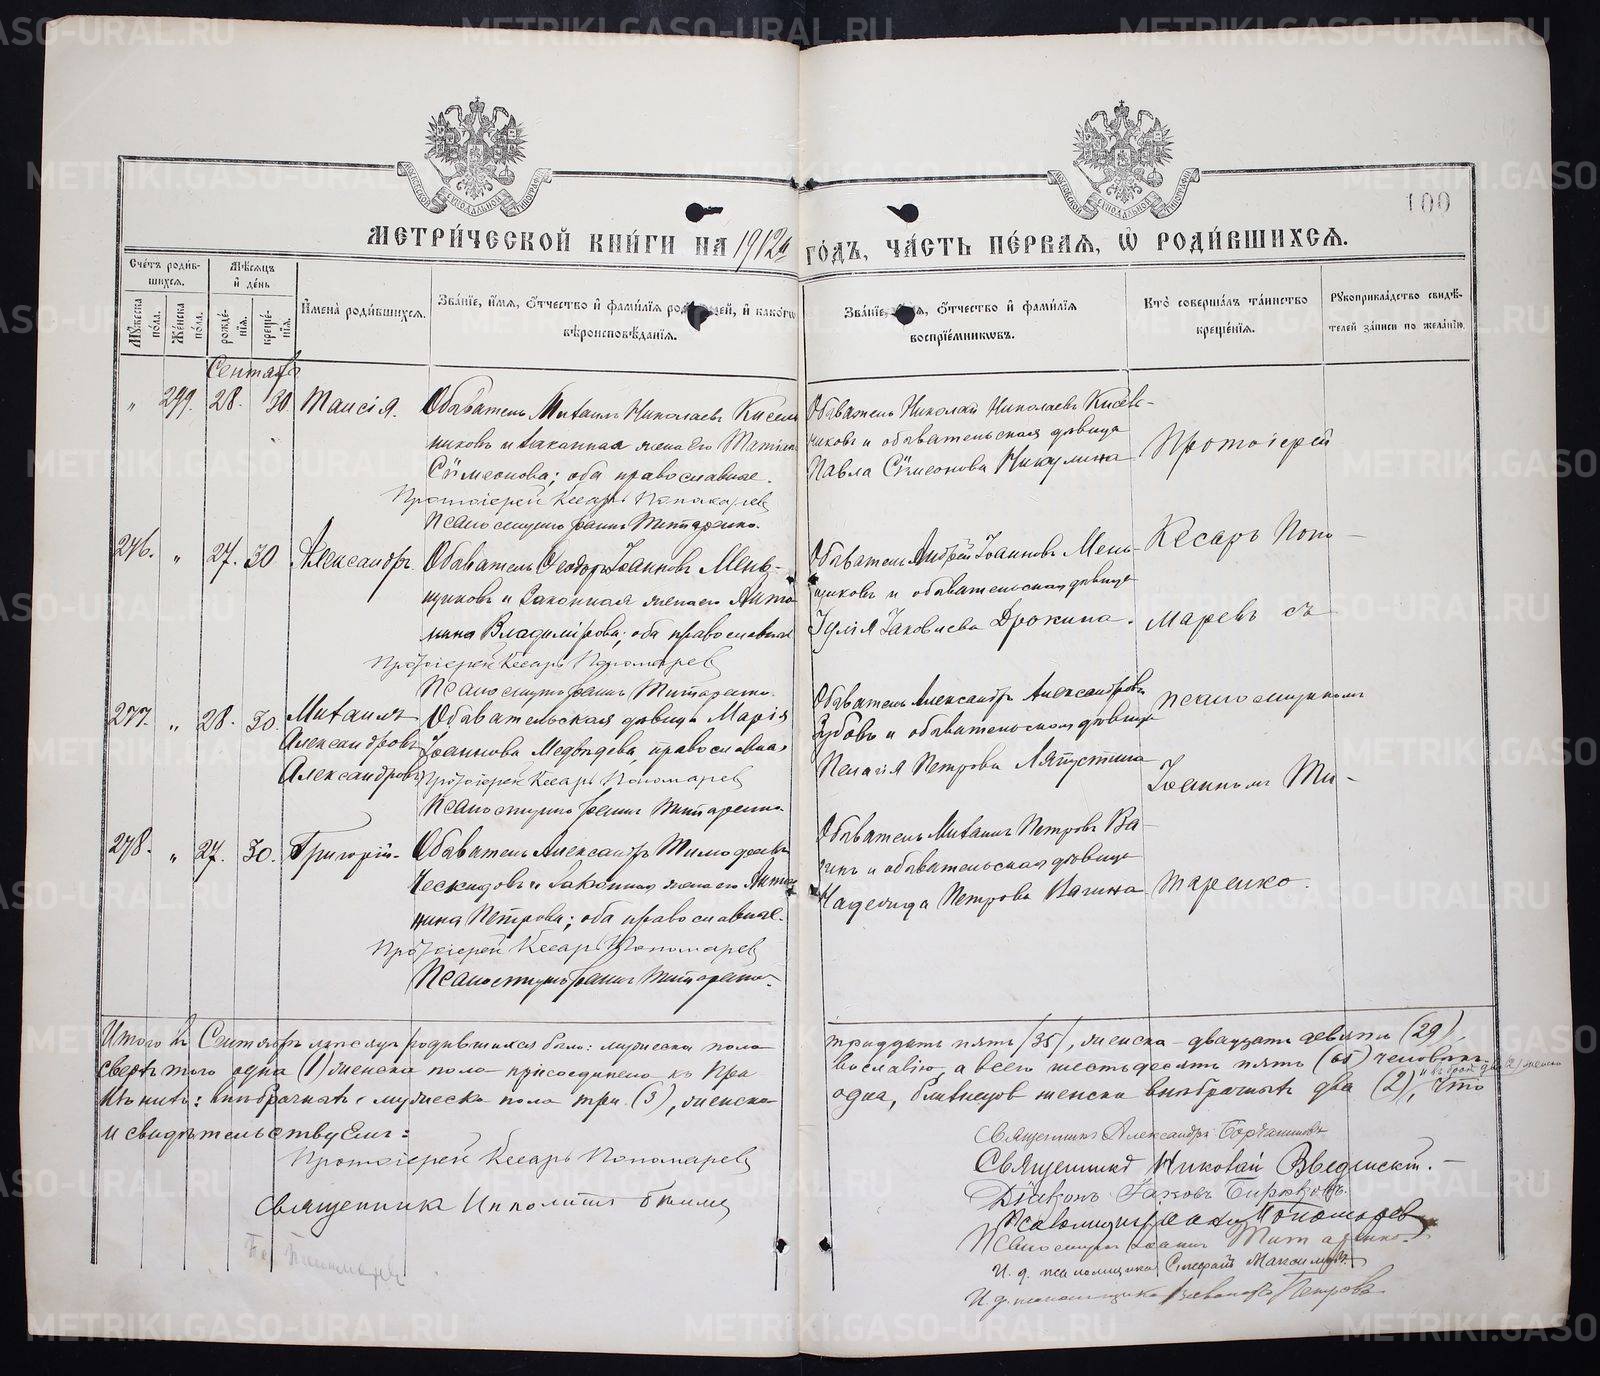 100
МЕТРИЧЕСКОЙ КНИГИ НА 1912й ГОДЪ, ЧАСТЬ ПЕРВАЯ, Ѡ РОДИВШИХСЯ.
Счетъ родившихся.
Мужеска пола.
Женска пола.
Мѣсяцъ и день
рожденія.
крещенія.
Имена родившихся.
Званіе, имя, отчество и фамилія родителей, и какого вѣроисповѣданія.
Званіе, имя, отчество и фамилія воспріемниковъ.
Кто совершалъ таинство крещенія.
Рукоприкладство свидѣтелей записи по желанію.
Сентябрь
„ 299. 28. 30. Таисія.
Обыватель Михаилъ Николаевъ
и законная жена его Татіана
Сѵмеонова; оба православные.
Протоіерей Кесарь Пономаревъ
Псаломщикъ Іоаннъ Титаренко.
Обыватель Николай Николаевъ
и обывательская дѣвица
Павла Сѵмеонова Никулина
276. „ 27. 30 Александръ.
Обыватель Ѳеодоръ Іоанновъ Мень-
щиковъ и законная жена его Анто
нина Владимірова; оба православные
Протоіерей Кесарь Пономаревъ
Псаломщикъ Іоаннъ Титаренко.
Обыватель Андрей Іоанновъ Мень-
щиковъ и обывательская дѣвица
Іулія Іаковлева Дрокина.
277. „ 28. 30. Михаилъ
Александровъ
Александровъ
Обывательская дѣвица Марія
Іоаннова Медвѣдева, православная
Протоіерей Кесарь Пономаревъ
Псаломщикъ Іоаннъ Титаренко.
Обыватель Александръ Александровъ
Зубовъ и обывательская дѣвица
Пелагія Петрова Лапустина
278. „ 27. 30. Григорій.
Обыватель Александръ Тимоѳеевъ
и законная жена его Анто
нина Петрова; оба православные.
Протоіерей Кесарь Пономаревъ
Псаломщикъ Іоаннъ Титаренко.
Обыватель Михаилъ Петровъ Ва-
гинъ и обывательская дѣвица
Надежда Петрова Вагина
Протоіерей
Кесарь Поно-
маревъ съ
псаломщикомъ
Іоанномъ Ти-
таренко.
Итого въ Сентябрѣ мѣсяцѣ родившихся было: мужеска пола тридцать пять /35/, женска – двадцать девять (29),
сверхъ того одна (1) женска пола присоединено къ Пра вославію, а всего шестьдесятъ пять (65) человѣкъ.
внѣбрачныхъ: мужеска пола три (3), женска одна, близнецов женска внѣбрачныхъ два (2), что
и свидѣтельствуемъ:
Протоіерей Кесарь Пономаревъ
Священникъ Ипполитъ
Священникъ Александръ
Священникъ Николай Введенскій.
Діаконъ Іаковъ Бирюковъ.
Псаломщикъ Пономаревъ
Псаломщикъ Іоаннъ Титаренко.
И. д. псаломщика Стефанъ Максимовъ.
И. д. псаломщика Петровъ
METRIKI.GASO-URAL.RU